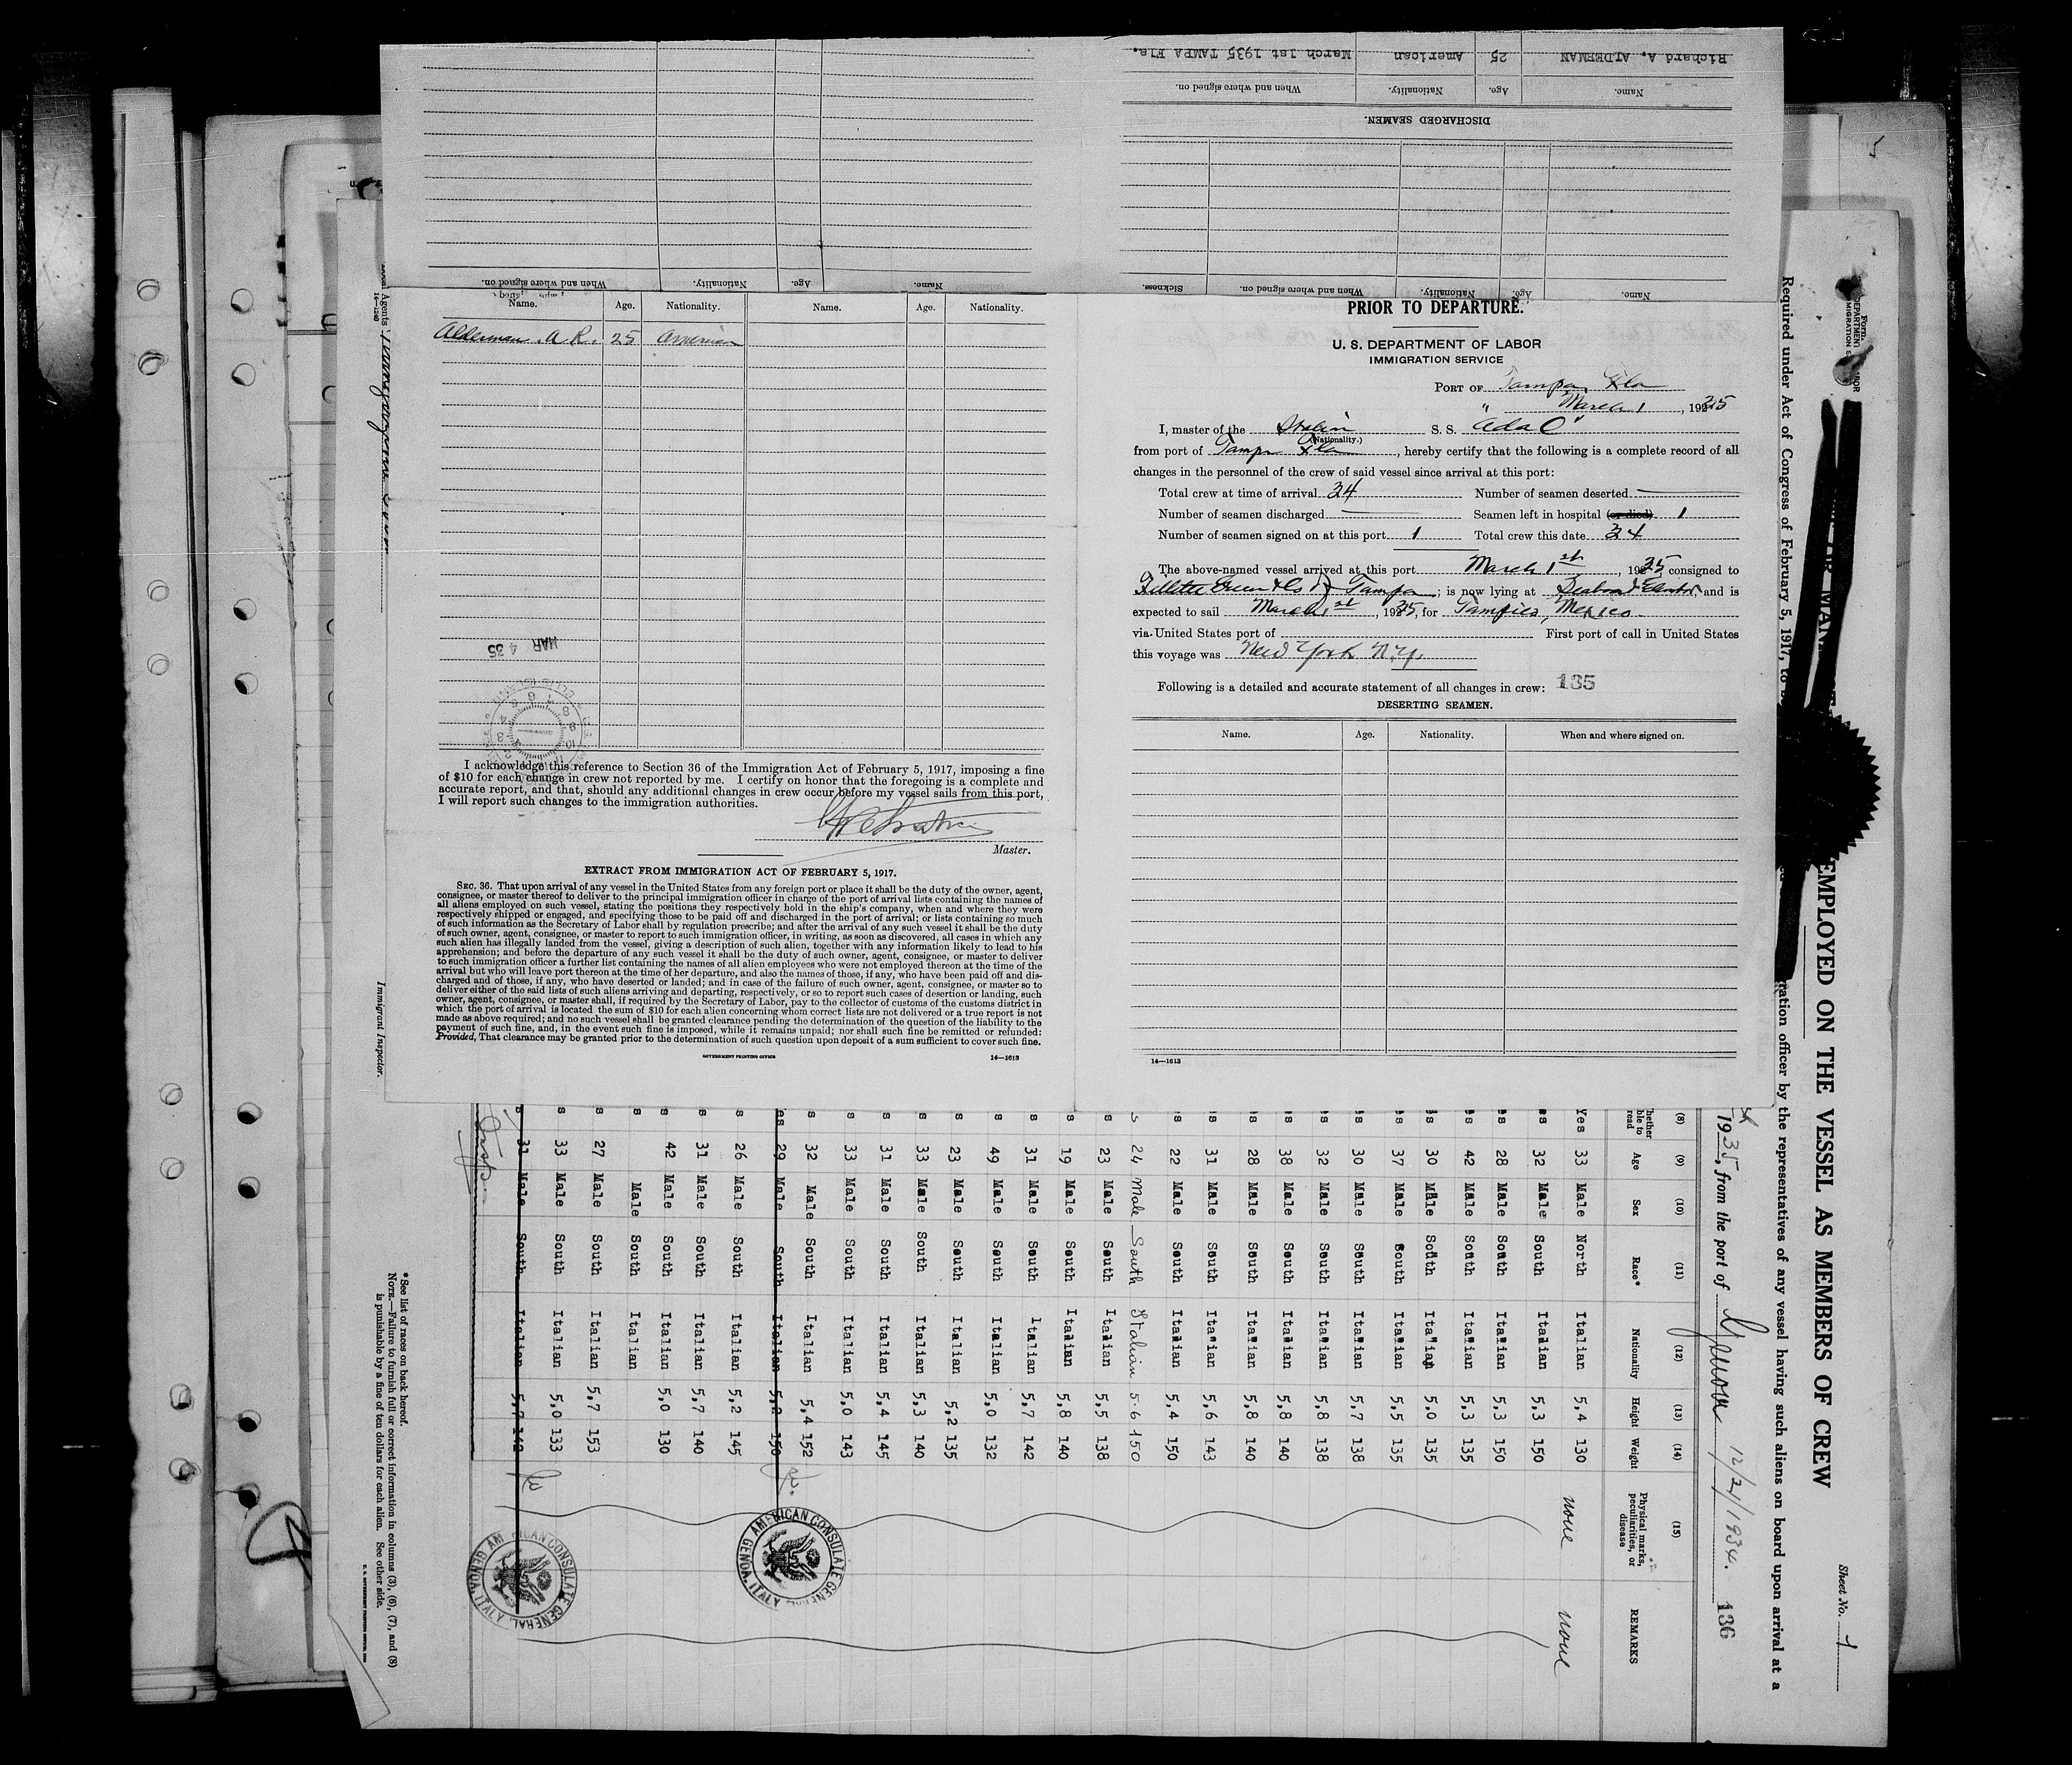 Richard A. ALDERMAN 25 American March 1st 1935 TAMPA Fla.
Name. Age. Nationality. When and where signed on.
DISCHARGED SEAMEN.
Name. Age. Nationality. When and where signed on. Sickness.
Name. Age. Nationality. When and where signed on.
Name. Age. Nationality. Name. Age. Nationality.
Alderman. A R. 25 American
MAR 4 35
I acknowledge this reference to Section 36 of the Immigration Act of February 5, 1917, imposing a fine
of $10 for each change in crew not reported by me. I certify on honor that the foregoing is a complete and
accurate report, and that, should any additional changes in crew occur before my vessel sails from this port,
I will report such changes to the immigration authorities.
Master.
EXTRACT FROM IMMIGRATION ACT OF FEBRUARY 5, 1917.
SEC. 36. That upon arrival of any vessel in the United States from any foreign port or place it shall be the duty of the owner, agent,
consignee, or master thereof to deliver to the principal immigration officer in charge of the port of arrival lists containing the names of
all aliens employed on such vessel, stating the positions they respectively hold in the ship's company, when and where they were
respectively shipped or engaged, and specifying those to be paid off and discharged in the port of arrival; or lists containing so much
of such information as the Secretary of Labor shall by regulation prescribe; and after the arrival of any such vessel it shall be the duty
of such owner, agent, consignee, or master to report to such immigration officer, in writing, as soon as discovered, all cases in which any
such alien has illegally landed from the vessel, giving a description of such alien, together with any information likely to lead to his
apprehension; and before the departure of any such vessel it shall be the duty of such owner, agent, consignee, or master to deliver
to such immigration officer a further list containing the names of all alien employees who were not employed thereon at the time of the
arrival but who will leave port thereon at the time of her departure, and also the names of those, if any, who have been paid off and dis-
charged and of those, if any, who have deserted or landed; and in case of the failure of such owner, agent, consignee, or master so to
deliver either of the said lists of such aliens arriving and departing, respectively, or so to report such cases of desertion or landing, such
owner, agent, consignee, or master shall, if required by the Secretary of Labor, pay to the collector of customs of the customs district in
which the port of arrival is located the sum of $10 for each alien concerning whom correct lists are not delivered or a true report is not
made as above required; and no such vessel shall be granted clearance pending the determination of the question of the liability to the
payment of such fine, and, in the event such fine is imposed, while it remains unpaid; nor shall such fine be remitted or refunded:
Provided, That clearance may be granted prior to the determination of such question upon deposit of a sum sufficient to cover such fine.
GOVERNMENT PRINTING OFFICE 14—1613
PRIOR TO DEPARTURE.
U. S. DEPARTMENT OF LABOR
IMMIGRATION SERVICE
PORT OF Tampa, Fla
March 1, 1935
I, master of the Italian S. S. "Ada O"
(Nationality.)
from port of Tampa Fla, hereby certify that the following is a complete record of all
changes in the personnel of the crew of said vessel since arrival at this port:
Total crew at time of arrival 34 Number of seamen deserted
Number of seamen discharged Seamen left in hospital (or died) 1
Number of seamen signed on at this port 1 Total crew this date 34
The above-named vessel arrived at this port March 1st, 1935 consigned to
Fillette Green & Co Tampa; is now lying at Seaboard Elevator, and is
expected to sail March 1st, 1935, for Tampico, Mexico
via United States port of First port of call in United States
this voyage was New York N.Y.
Following is a detailed and accurate statement of all changes in crew: 135
DESERTING SEAMEN.
Name. Age. Nationality. When and where signed on.
14—1613
Sheet No. 1
EMPLOYED ON THE VESSEL AS MEMBERS OF CREW
Required under Act of Congress of February 5, 1917, to
ration officer by the representatives of any vessel having such aliens on board upon arrival at a
1935, from the port of Genoa 12/21/1934. 136
(8) (9) (10) (11) (12) (13) (14) (15)
Age Sex Race* Nationality Height Weight Physical marks, peculiarities, or disease REMARKS
Yes 33 Male North Italian 5,4 130 none none
es 32 Male South Italian 5,3 150
es 28 Male South Italian 5,3 150
es 42 Male South Italian 5,3 135
es 30 Male South Italian 5,0 135
es 37 Male South Italian 5,5 135
es 30 Male South Italian 5,7 138
es 32 Male South Italian 5,8 138
s 38 Male South Italian 5,8 140
s 28 Male South Italian 5,8 140
s 31 Male South Italian 5,6 143
s 22 Male South Italian 5,4 150
s 24 Male South Italian 5-6 150
s 23 Male South Italian 5,5 138
s 19 Male South Italian 5,8 140
s 31 Male South Italian 5,7 142
s 49 Male South Italian 5,0 132
s 23 Male South Italian 5,2 135
s 33 Male South Italian 5,3 140
s 31 Male South Italian 5,4 145
s 33 Male South Italian 5,0 143
s 32 Male South Italian 5,4 152
es 29 Male South Italian 5,2 150
s 26 Male South Italian 5,2 145
s 31 Male South Italian 5,7 140
s 42 Male South Italian 5,0 130
s Male South Italian
s 27 Male South Italian 5,7 153
s 33 Male South Italian 5,0 133
s 31 Male South Italian 5,7 142
AMERICAN CONSULATE GENERAL GENOVA, ITALY
AMERICAN CONSULATE GENERAL GENOVA, ITALY
* See list of races on back hereof.
NOTE.—Failure to furnish full or correct information in columns (3), (6), (7), and (8)
is punishable by a fine of ten dollars for each alien. See other side.
Immigrant Inspector.
14—1240
5